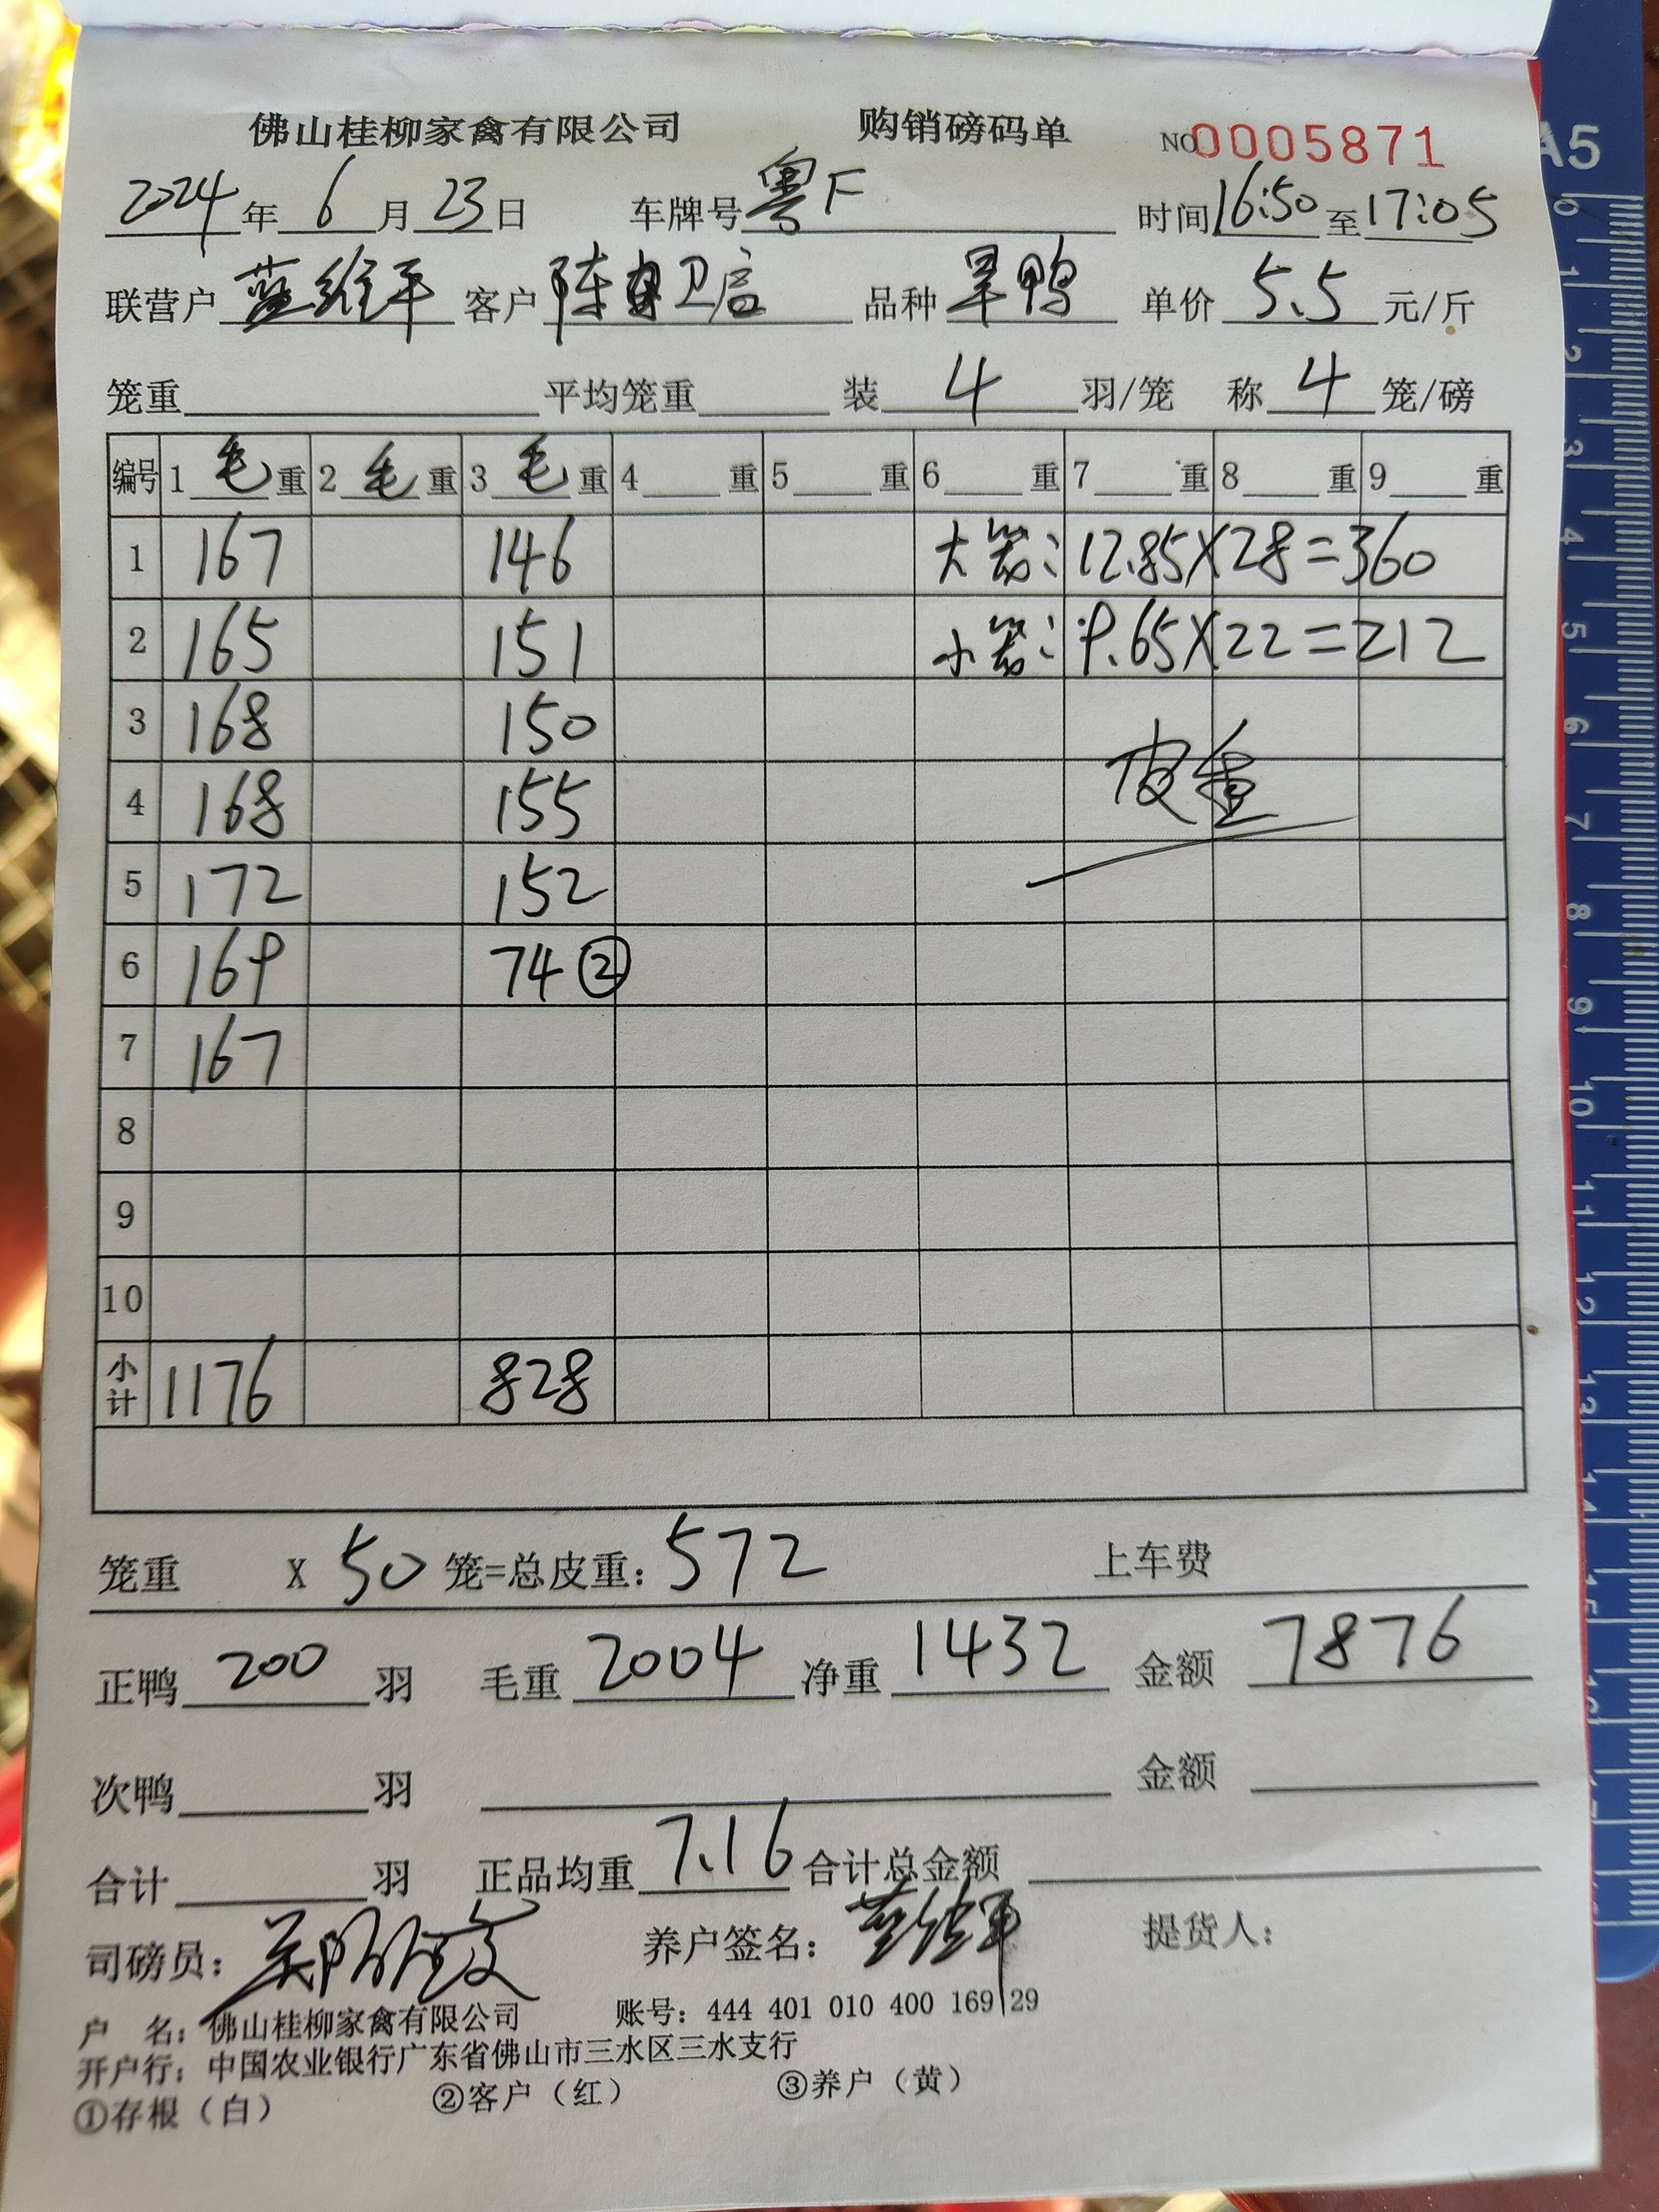 佛山桂柳家禽有限公司 购销磅码单 NO 0005871
2024年 6 月 23 日 车牌号 粤F 时间 16:50 至 17:05
联营户 蓝维平 客户 陈 卫启 品种 旱鸭 单价 5.5 元/斤
笼重 平均笼重 装 4 羽/笼 称 4 笼/磅
编号 1 毛 重 2 毛 重 3 毛 重 4 重 5 重 6 重 7 重 8 重 9 重
1 167 146 大笼: 12.85X28=360
2 165 151 小笼: 9.65X22=212
3 168 150
4 168 155 皮重
5 172 152
6 169 74 ②
7 167
8
9
10
小计 1176 828
笼重 X 50 笼=总皮重: 572 上车费
正鸭 200 羽 毛重 2004 净重 1432 金额 7876
次鸭 羽 金额
合计 羽 正品均重 7.16 合计总金额
司磅员: 养户签名: 提货人:
户 名: 佛山桂柳家禽有限公司 账号: 444 401 010 400 169 29
开户行: 中国农业银行广东省佛山市三水区三水支行
①存根(白) ②客户(红) ③养户(黄)
A5
0 1 2 3 4 5 6 7 8 9 10 11 12 13 14 15 16 17